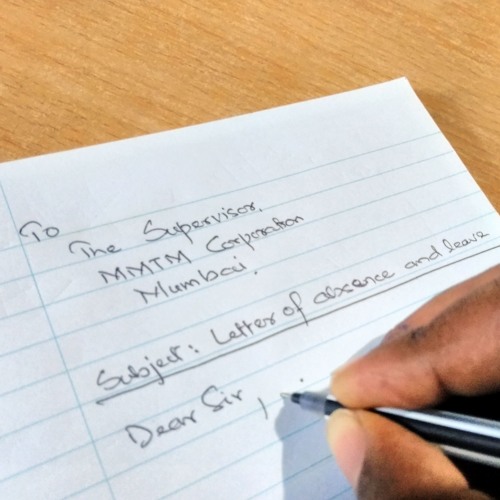 To
The Supervisor.
MMTM Corporation
Mumbai.
Subject: Letter of absence and leave
Dear Sir,